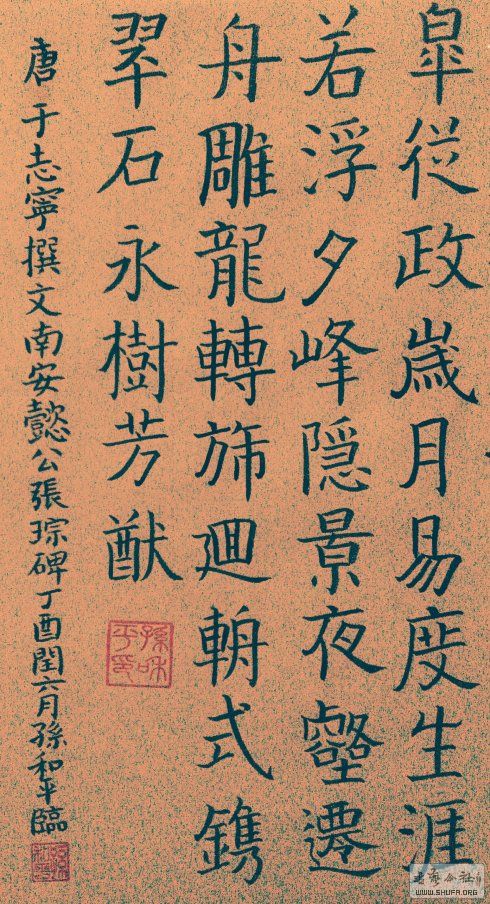 皐從政歲月易度生涯
若浮夕峰隱景夜壑遷
舟雕龍轉斾迴輈式鐫
翠石永樹芳猷
唐于志寧撰文南安懿公張琮碑丁酉閏六月孫和平臨
孫和平印
WWW.SHUFA.ORG